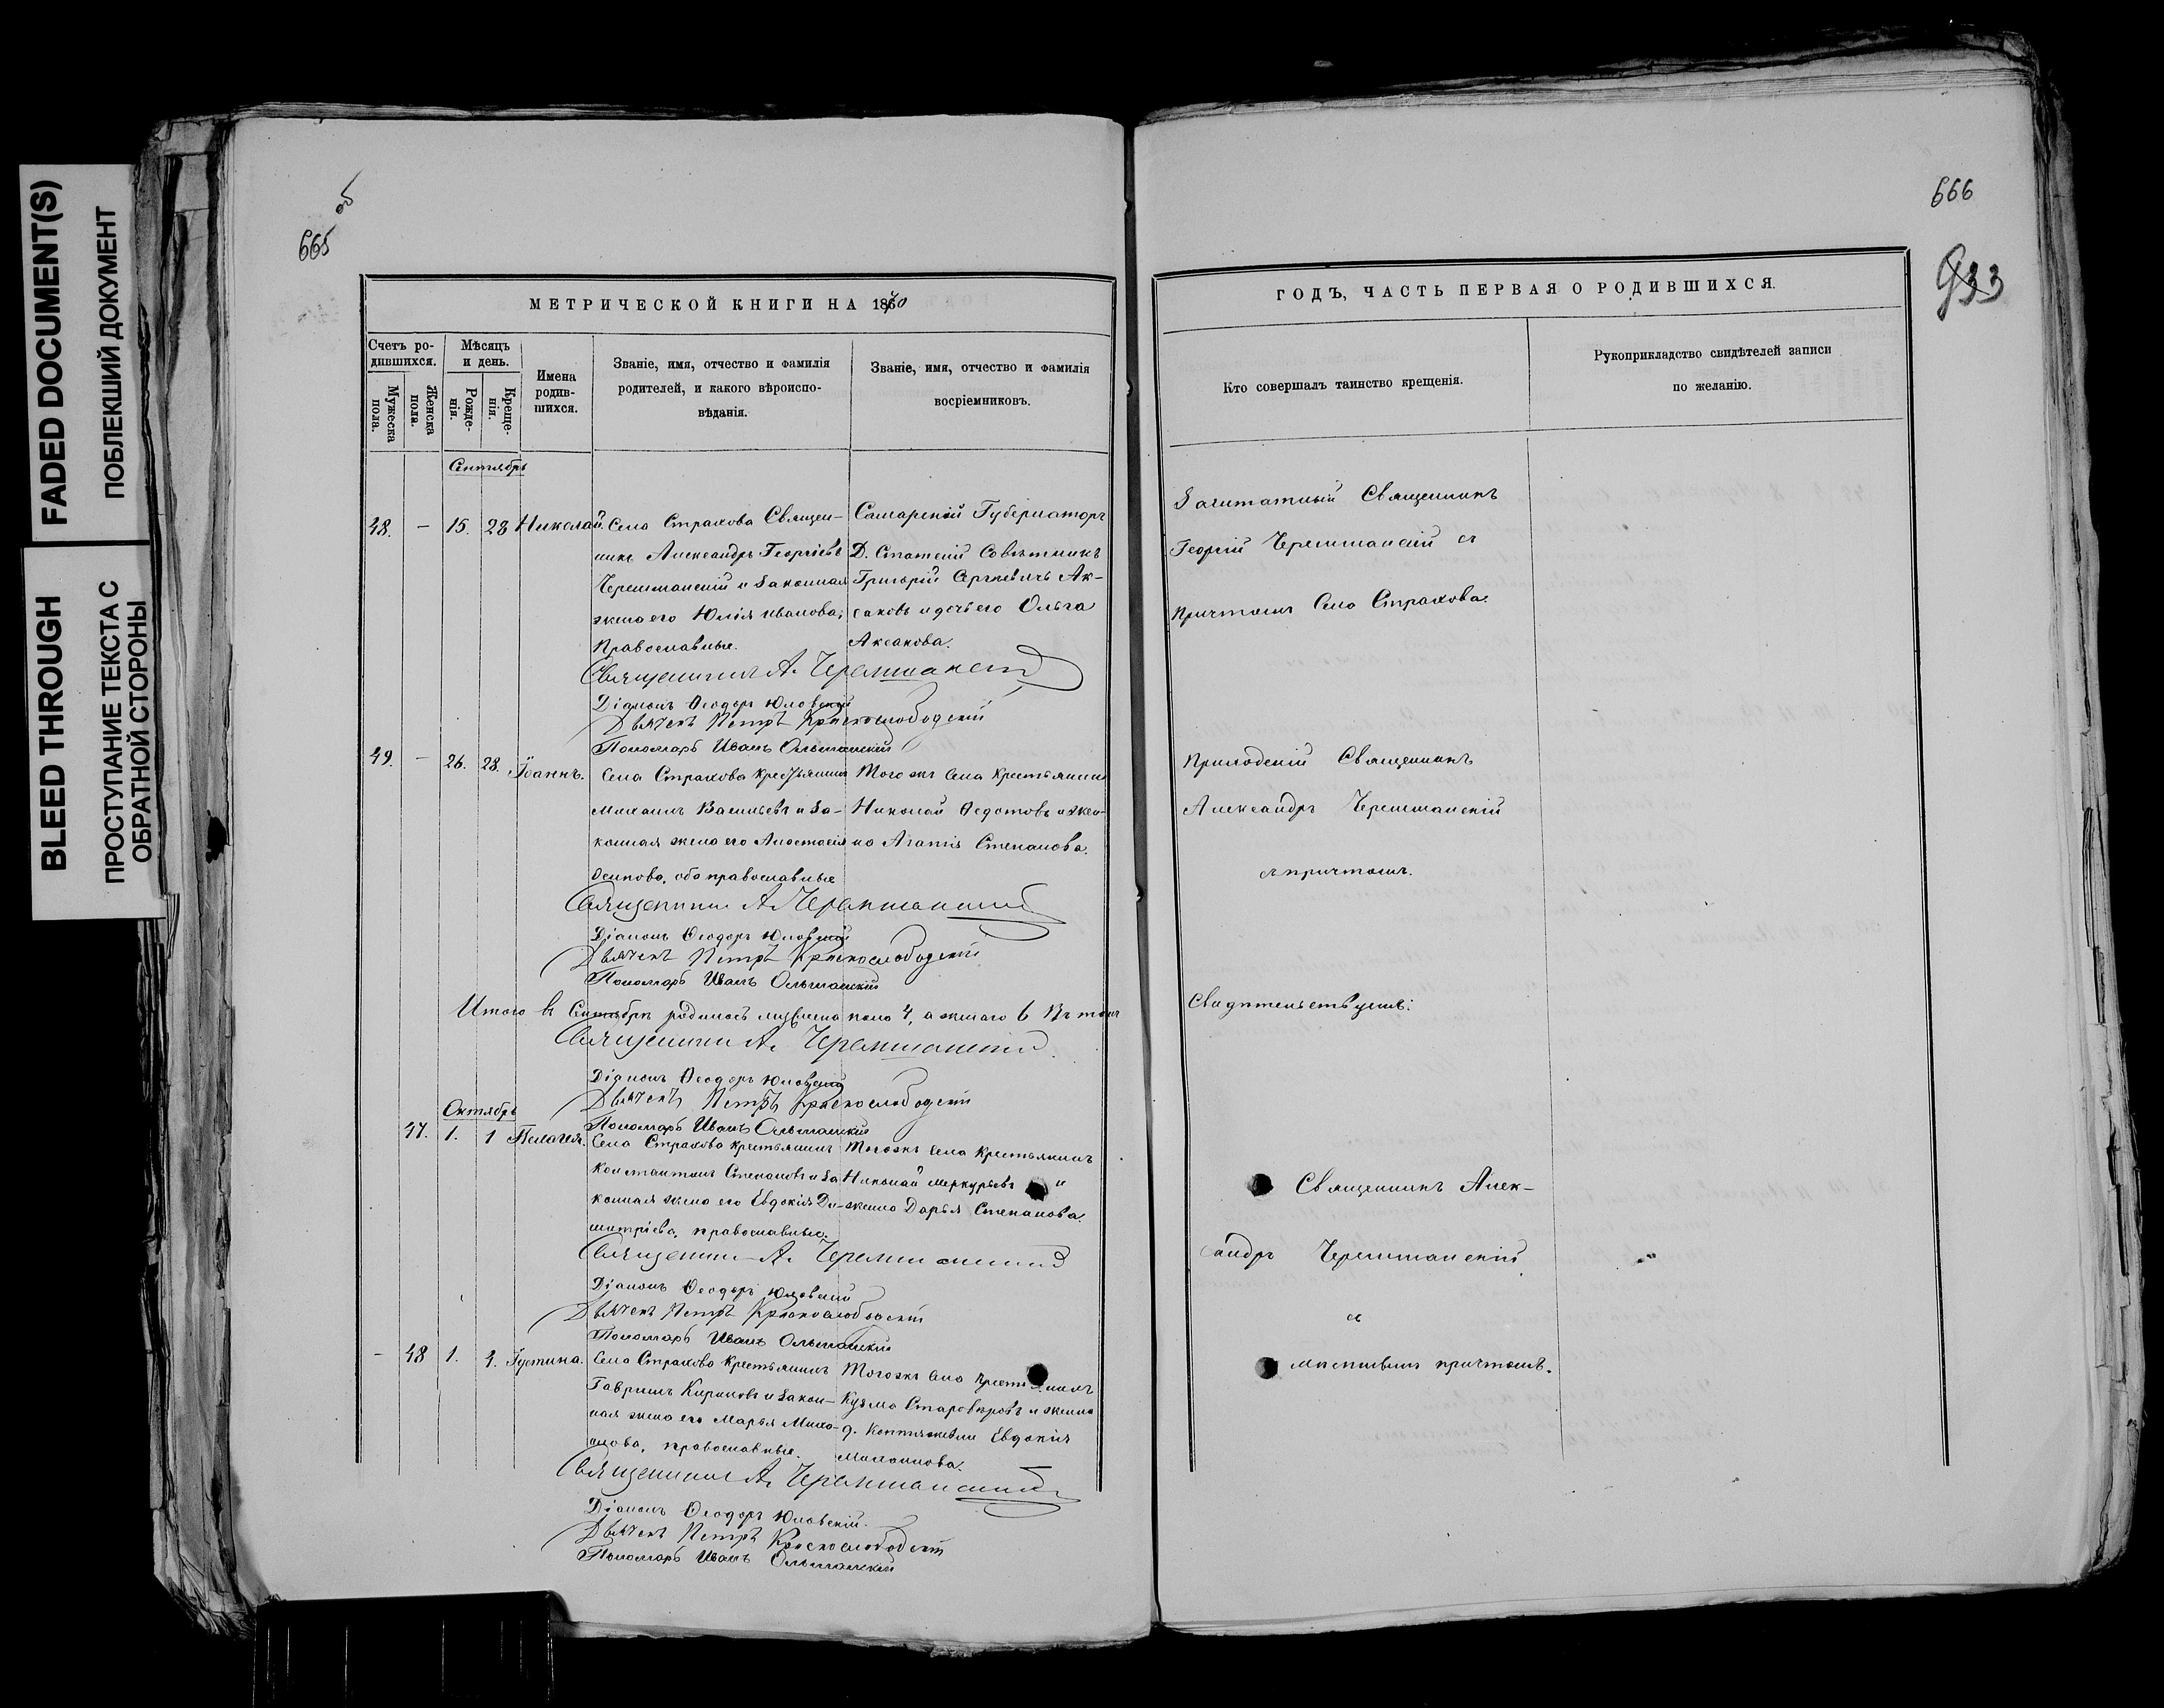 FADED DOCUMENT(S)
ПОБЛЕКШИЙ ДОКУМЕНТ
BLEED THROUGH
ПРОСТУПАНИЕ ТЕКСТА С
ОБРАТНОЙ СТОРОНЫ
665 об
МЕТРИЧЕСКОЙ КНИГИ НА 1870
Счетъ родившихся.
Мужеска пола.
Женска пола.
Мѣсяцъ и день.
Рожденія.
Крещенія.
Имена родившихся.
Званіе, имя, отчество и фамилія
родителей, и какого вѣроиспо-
вѣданія.
Званіе, имя, отчество и фамилія
восріемниковъ.
Сентябрь
48. – 15. 28 Николай.
Села Страхова Священ-
никъ Александръ Георгіевъ
Черемшанскій и законная
жена его Юлія Иванова,
Православные.
Самарскій Губернаторъ
Д. Статскій Совѣтникъ
Григорій Сергѣевичъ Ак-
саковъ и дочь его Ольга
Аксакова.
Священникъ А. Черемшанскій
Діаконъ Ѳеодоръ Юловскій
Дьячекъ Петръ Краснослободскій
Пономарь Иванъ Ольшанскій
49. – 26. 28. Іоаннъ.
Села Страхова крестьянинъ
Михаилъ Васильевъ и за-
конная жена его Анастасія
Осипова, оба православные
Того же села крестьянинъ
Николай Ѳедотовъ и жен-
ка Агапія Степанова.
Священникъ А. Черемшанскій
Діаконъ Ѳеодоръ Юловскій
Дьячекъ Петръ Краснослободскій
Пономарь Иванъ Ольшанскій
Итого въ Сентябрѣ родилось мужеска пола 4, а женскаго 6 Въ томъ
Священникъ А. Черемшанскій.
Діаконъ Ѳеодоръ Юловскій
Дьячекъ Петръ Краснослободскій
Пономарь Иванъ Ольшанскій
Октябрь
47. 1. 1 Пелагея.
Села Страхова крестьянинъ
Константинъ Степановъ и за
конная жена его Евдокія Ди-
митріева, православные.
Того же села крестьянинъ
Николай Меркурьевъ и
жена Дарья Степанова.
Священникъ А. Черемшанскій
Діаконъ Ѳеодоръ Юловскій
Дьячекъ Петръ Краснослободскій
Пономарь Иванъ Ольшанскій
– 48 1. 4. Іустина.
Села Страхова крестьянинъ
Гавріилъ Кириловъ и закон-
ная жена его Марья Миха-
лова, православные.
Того же села крестьянинъ
Кузма Старовѣровъ и жена
Евдокія
Священникъ А. Черемшанскій
Діаконъ Ѳеодоръ Юловскій.
Дьячекъ Петръ Краснослободскій
Пономарь Иванъ Ольшанскій
666
933
ГОДЪ, ЧАСТЬ ПЕРВАЯ О РОДИВШИХСЯ.
Кто совершалъ таинство крещенія.
Рукоприкладство свидѣтелей записи
по желанію.
Заштатный Священникъ
Георгій Черемшанскій съ
причтомъ Села Страхова.
Приходскій Священникъ
Александръ Черемшанскій
съ причтомъ.
Свидѣтельствуемъ:
Священникъ Алек-
сандръ Черемшанскій
съ
мѣстнымъ причтомъ.